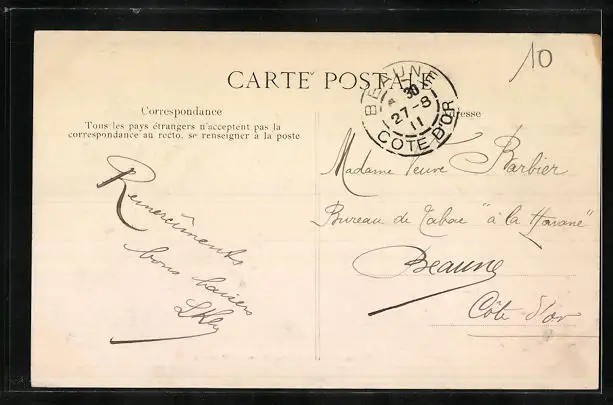 10
CARTE POSTALE
BEAUNE
30
27-8
11
COTE D'OR
Correspondance
Adresse
Tous les pays étrangers n'acceptent pas la
correspondance au recto. se renseigner à la poste
Remerciments
bons baisers
Madame Veuve Barbier
Bureau de Tabac "à la Havane"
Beaune
Côte d'or